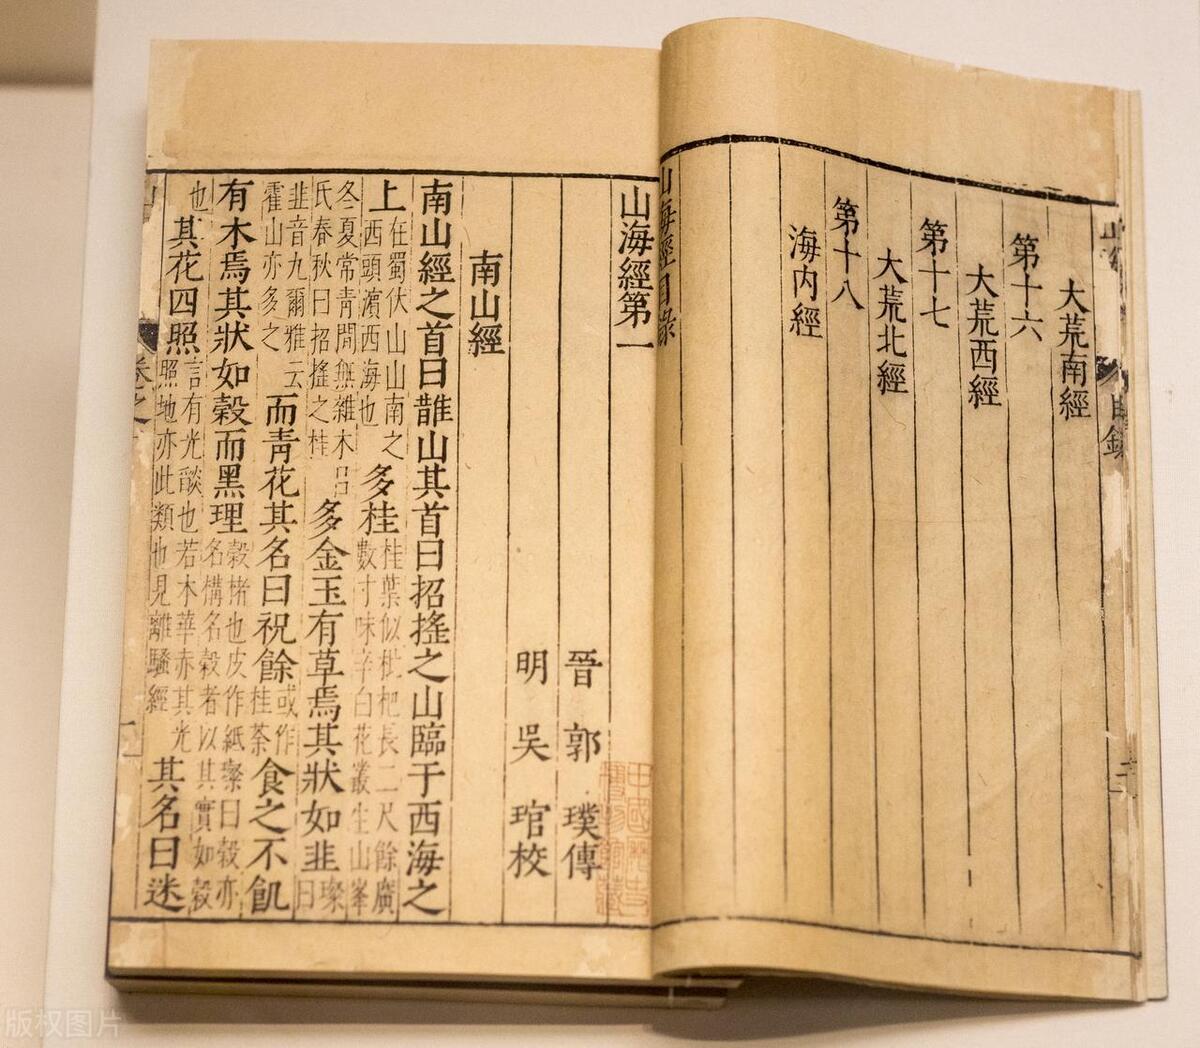 大荒南經
第十六
大荒西經
第十七
大荒北經
第十八
海內經
山海經目錄
山海經第一
晉郭璞傳
明吳琯校
南山經
南山經之首曰䧿山其首曰招搖之山臨于西海之
上在蜀伏山山南之西頭濱西海也多桂桂葉似枇杷長二尺餘廣數寸味辛白花叢生山峯
冬夏常青間無雜木呂氏春秋曰招搖之桂多金玉有草焉其狀如韭璨曰
韭音九爾雅云霍山亦多之而青花其名曰祝餘或作桂荼食之不飢
有木焉其狀如榖而黑理榖楮也皮作紙璨曰榖亦名構名榖者以其實如榖
也其花四照言有光燄也若木華赤其光照地亦此類也見離騷經其名曰迷
版权图片